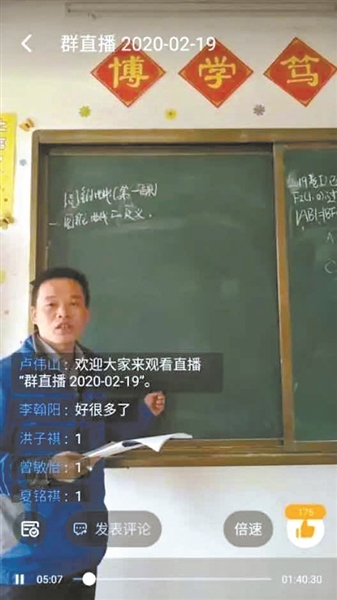 群直播 2020-02-19
博学笃
圆锥曲线(第一课
卢伟山：欢迎大家来观看直播
“群直播 2020-02-19”。
李翰阳：好很多了
洪子祺：1
曾敏怡：1
夏铭祺：1
发表评论
倍速
176
05:07
01:40:30